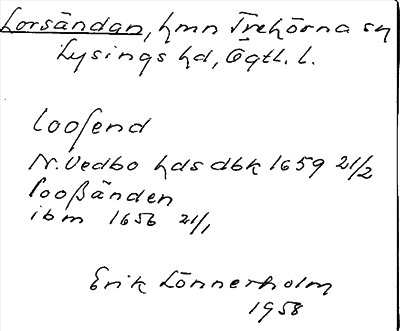 Lorsändan, hmn Trehörna sn
Lysings hd, Ögtl. l.
loosend
N. Vedbo hds dbk 1659 21/2
looßänden
ibm 1656 21/1
Erik Lönnerholm
1958